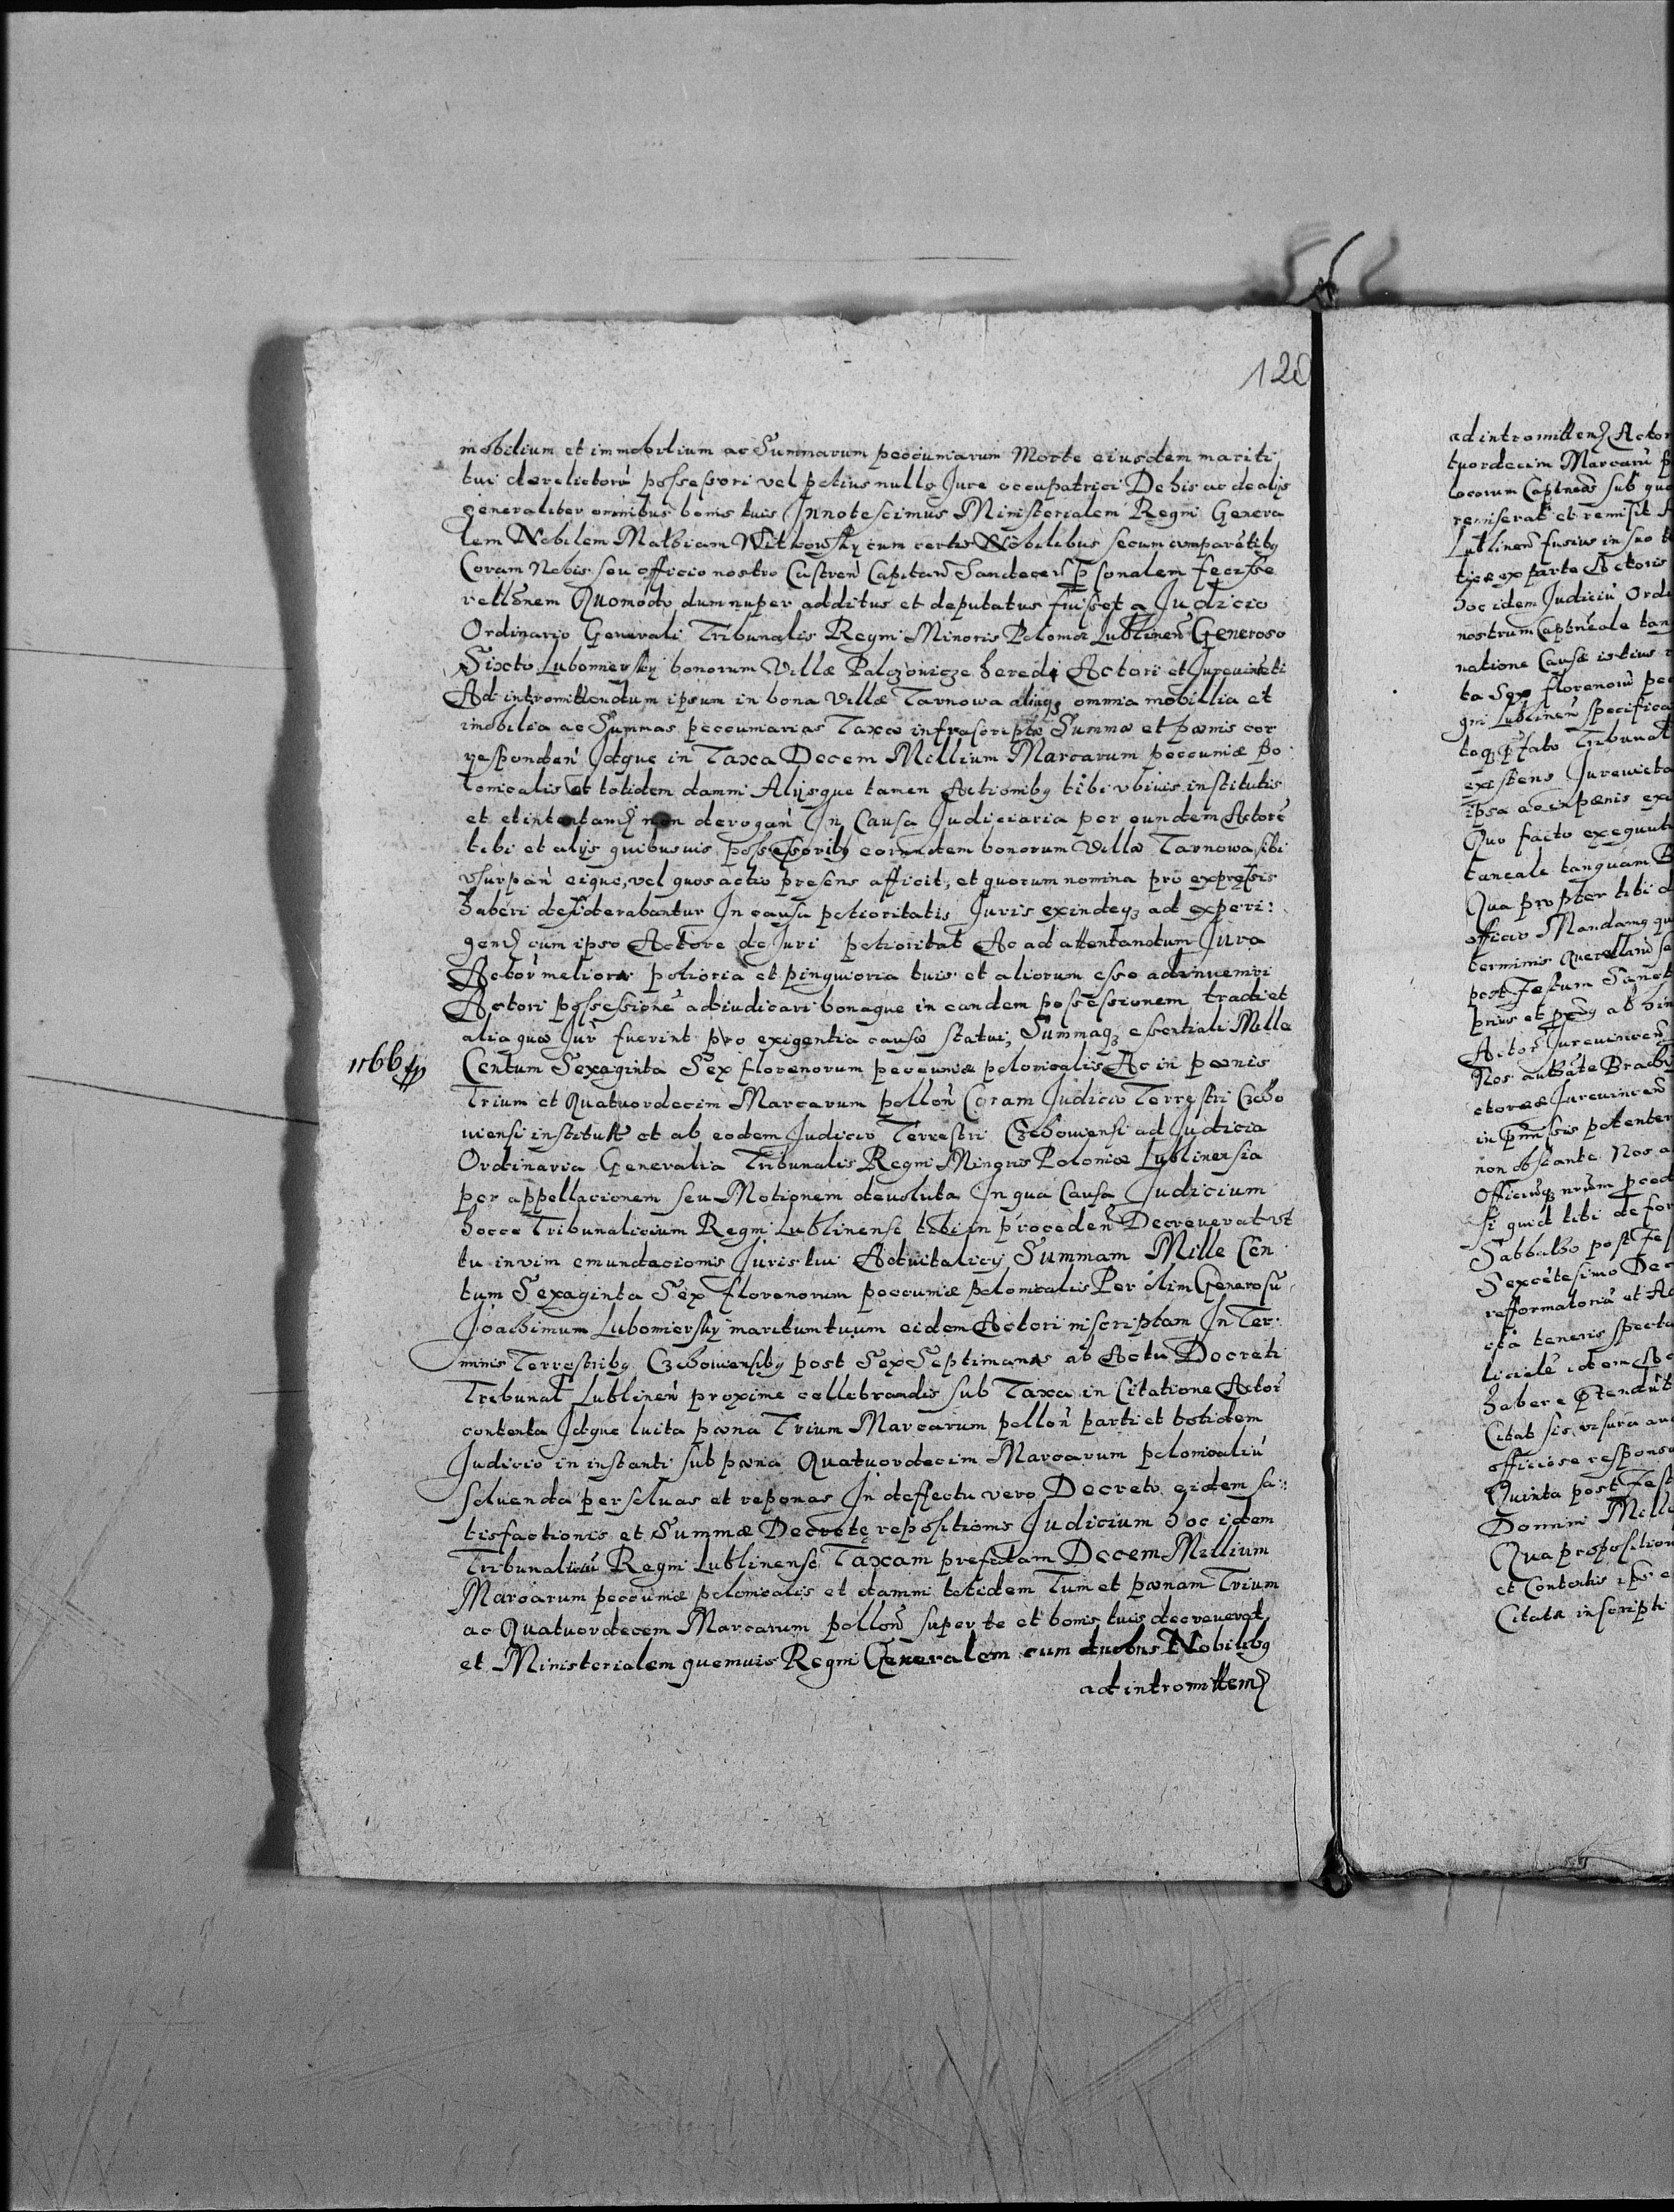 120
mobilium et immobilium ac Summarum peccuniarum Morte eiusdem mariti
tui derelictorũ possessori vel potius nullo Jure occupatrici De his ac de alijs
generaliter omnibus bonis tuis Innotescimus Ministerialem Regni Genera
lem Nobilem Mathiam Witkowsky cum certis Nobilibus secum comparẽtibq
Coram Nobis seu officio nostro Castreñ Capitañ Sandeceñ p̱sonalem fecisse
rellõnem Quomodo dum nuper additus et deputatus fuisset a Judicio
Ordinario Generali Tribunalis Regni Minoris Poloniæ Lublineñ Generoso
Sixto Lubomiersky bonorum Villæ Palczowicze heredi Actori et Jurevincẽti
Ad intromittendum ipsum in bona Villæ Tarnowa aliaqȝ omnia mobillia et
imobilia ac Summas peccuniarias Taxæ infrascriptæ Summæ et pœnis cor
respondeñ Idque in Taxa Decem Millium Marcarum peccuniæ Po
lonicalis et totidem damni Alijsque tamen Actionibq tibi vbiuis institutis
et etintentand non derogañ In Causa Judiciaria per eundem Actorẽ
tibi et alijs quibusuis possessoribq eorundem bonorum Villæ Tarnowa sibi
vsurpañ eique, vel quos actio presens afficit, et quorum nomina pro expressis
haberi desiderabantur In causa potioritatis Juris exindeqȝ ad experi:
gend cum ipso Actore de Juri potioritat Ac ad attentandum Jura
Actor meliora potioria et pinguioria tuis et aliorum esse adinueniri
Actori possessionẽ adiudicari bonaque in eandem possessionem tradi et
alia quæ Jur fuerint pro exigentia causæ statui, Summaqȝ essentiali Mille
1166 fp
Centum Sexaginta Sex florenorum peccuniæ polonicalis Ac in pœnis
Trium et Quatuordecim Marcarum polloñ Coram Judicio Terrestri Czcho
uiensi institutt et ab eodem Judicio Terrestri Czchouiensi ad Judicia
Ordinaria Generalia Tribunalis Regni Minoris Poloniæ Lublinensia
per appellacionem seu Motionem deuoluta In qua Causa Judicium
hocce Tribunalicium Regni Lublinense tibi in procedeñ Decreuerat vt
tu in vim emundacionis Juris tui Aduitalicij Summam Mille Cen
tum Sexaginta Sex florenorum peccuniæ polonicalis Per olim Generosũ
Joachimum Lubomiersky maritum tuum eidem Actori inscriptam In Ter:
minis Terrestribq Czchouiensibq post Sex Septimanas ab Actu Decreti
Tribunal Lublineñ proxime cellebrandis sub Taxa in Citatione Actor
contenta Idque luita pœna Trium Marcarum polloñ parti et totidem
Judicio in instanti sub pœna Quatuordecim Marcarum polonicaliũ
soluenda persoluas et reponas In deffectu vero Decreto eidem sa:
tisfactionis et Summæ Decretę repositionis Judicium hoc idem
Tribunaliciũ Regni Lublinense Taxam prefatam Decem Millium
Marcarum peccuniæ polonicalis et damni totidem Tum et pœnam Trium
ac Quatuordecem Marcarum polloñ super te et bonis tuis decreuerat
et Ministerialem quemuis Regni Generalem cum duobus Nobilibq
ad intromittend
ad intromittend Actor
tuordecim Marcarũ
locorum Captneas sub
remiserat et remisit
Lublineñ fusius in suo
ex parte Actoris
hoc idem Judiciũ Ordi
nostrum Captneale tan
natione Causæ istius
ta Sex florenorũ pec
gni Lublineñ specifica
Tribunal
existens Jurevicta
ipsa ac in pœnis
Quo facto exequuti
taneale tanquam
Qua propter tibi
officio Mandamq
terminis
post festum Sanct
prius et ab
Actor Jurevinceñ
Nos
ctoreæ Jurevinceñ
in potenter
non obstante Nos
si quid tibi de for
Sabbatho post fe
Sexcẽtesimo Dec
refformatoriã et
ita teneris
idem
habere
officiose respons
Quinta post fest
Domini Mille
Qua proposition
et Contentis
Citatæ inscripti